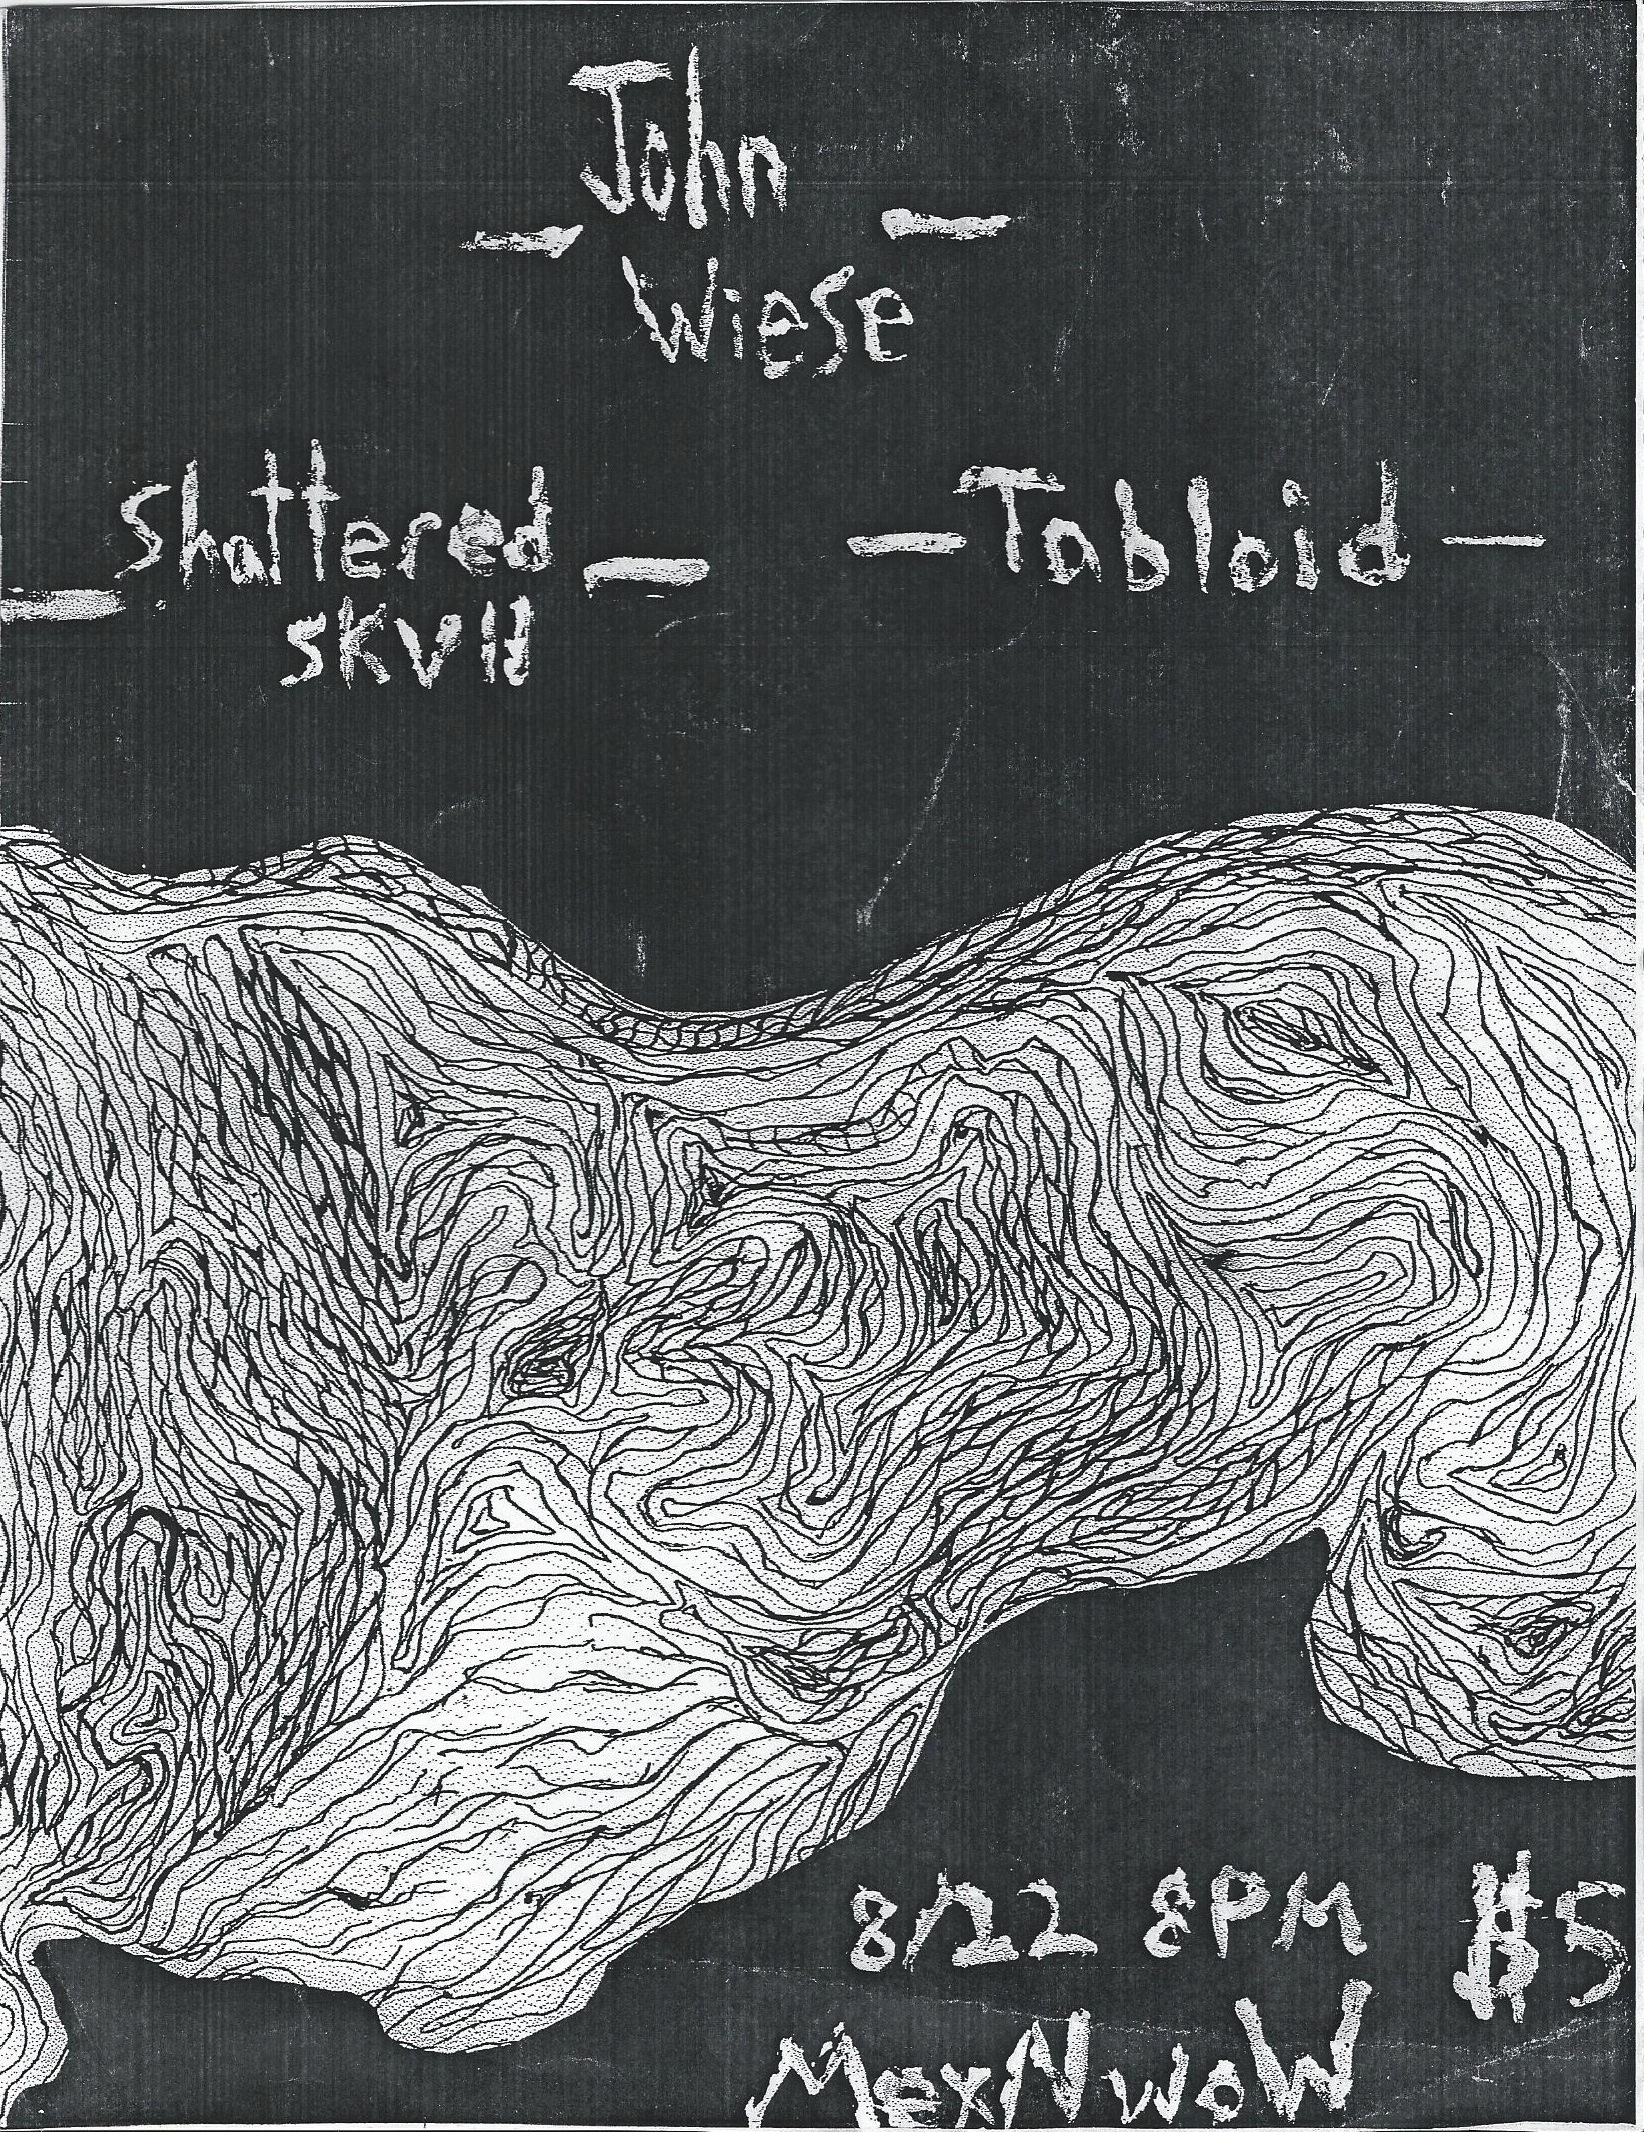 John
Wiese
Shattered
SKVll
Tabloid
8/22 8PM $5
MexNwoW